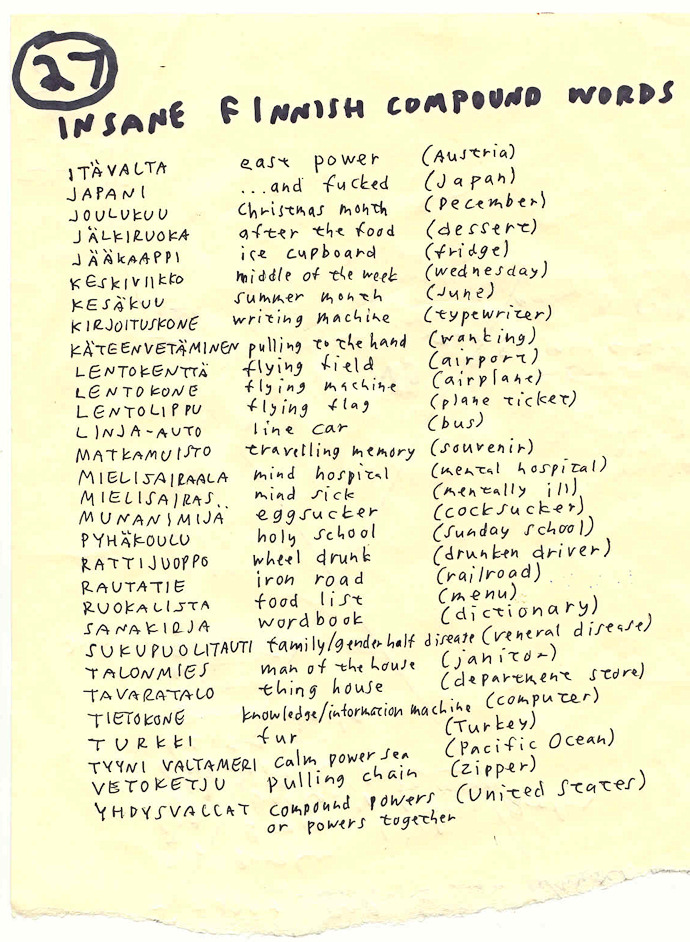 27
INSANE FINNISH COMPOUND WORDS
ITÄVALTA east power (Austria)
JAPANI ...and fucked (Japan)
JOULUKUU Christmas month (December)
JÄLKIRUOKA after the food (dessert)
JÄÄKAAPPI ice cupboard (fridge)
KESKIVIIKKO middle of the week (wednesday)
KESÄKUU summer month (June)
KIRJOITUSKONE writing machine (typewriter)
KÄTEENVETÄMINEN pulling to the hand (wanking)
LENTOKENTTÄ flying field (airport)
LENTOKONE flying machine (airplane)
LENTOLIPPU flying flag (plane ticket)
LINJA-AUTO line car (bus)
MATKAMUISTO travelling memory (souvenir)
MIELISAIRAALA mind hospital (mental hospital)
MIELISAIRAS mind sick (mentally ill)
MUNANIMIJÄ eggsucker (cocksucker)
PYHÄKOULU holy school (sunday school)
RATTIJUOPPO wheel drunk (drunken driver)
RAUTATIE iron road (railroad)
RUOKALISTA food list (menu)
SANAKIRJA wordbook (dictionary)
SUKUPUOLITAUTI family/gender half disease (veneral disease)
TALONMIES man of the house (janitor)
TAVARATALO thing house (department store)
TIETOKONE knowledge/information machine (computer)
TURKKI fur (Turkey)
TYYNI VALTAMERI calm power sea (Pacific Ocean)
VETOKETJU pulling chain (zipper)
YHDYSVALLAT compound powers (United States)
or powers together